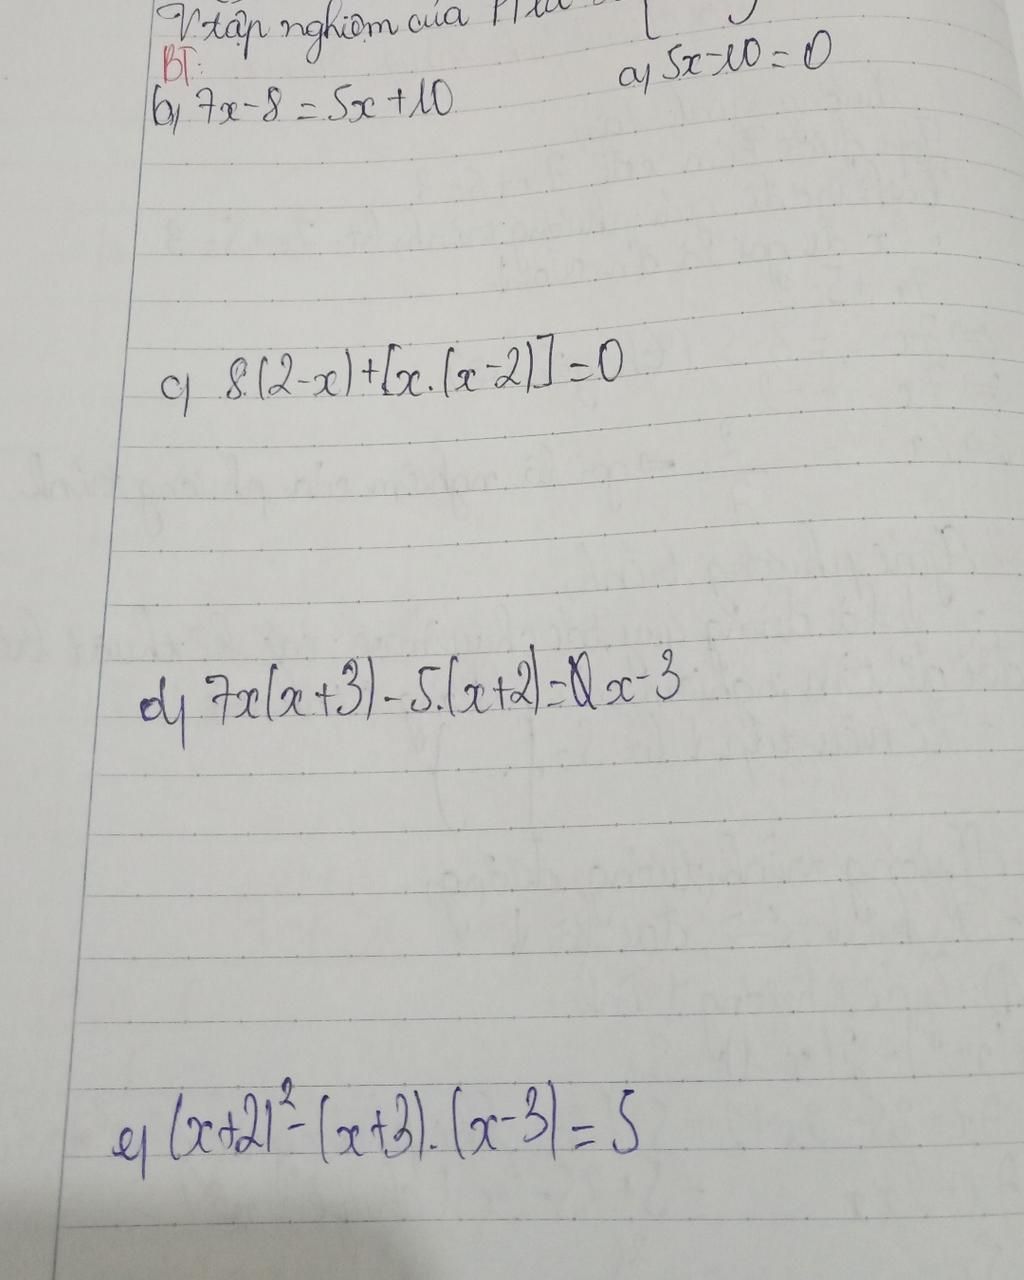 V tập nghiệm của
BT:
a) 5x-10=0
b) 7x-8=5x+10
c) 8.(2-x)+[x.(x-2)]=0
d) 7x(x+3)-5.(x+2)= x-3
e) (x+2)²-(x+3).(x-3)=5